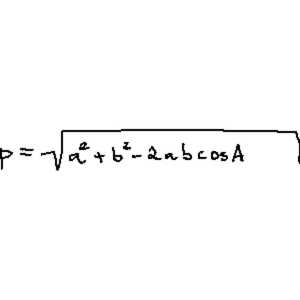 p = √a² + b² - 2ab cos A